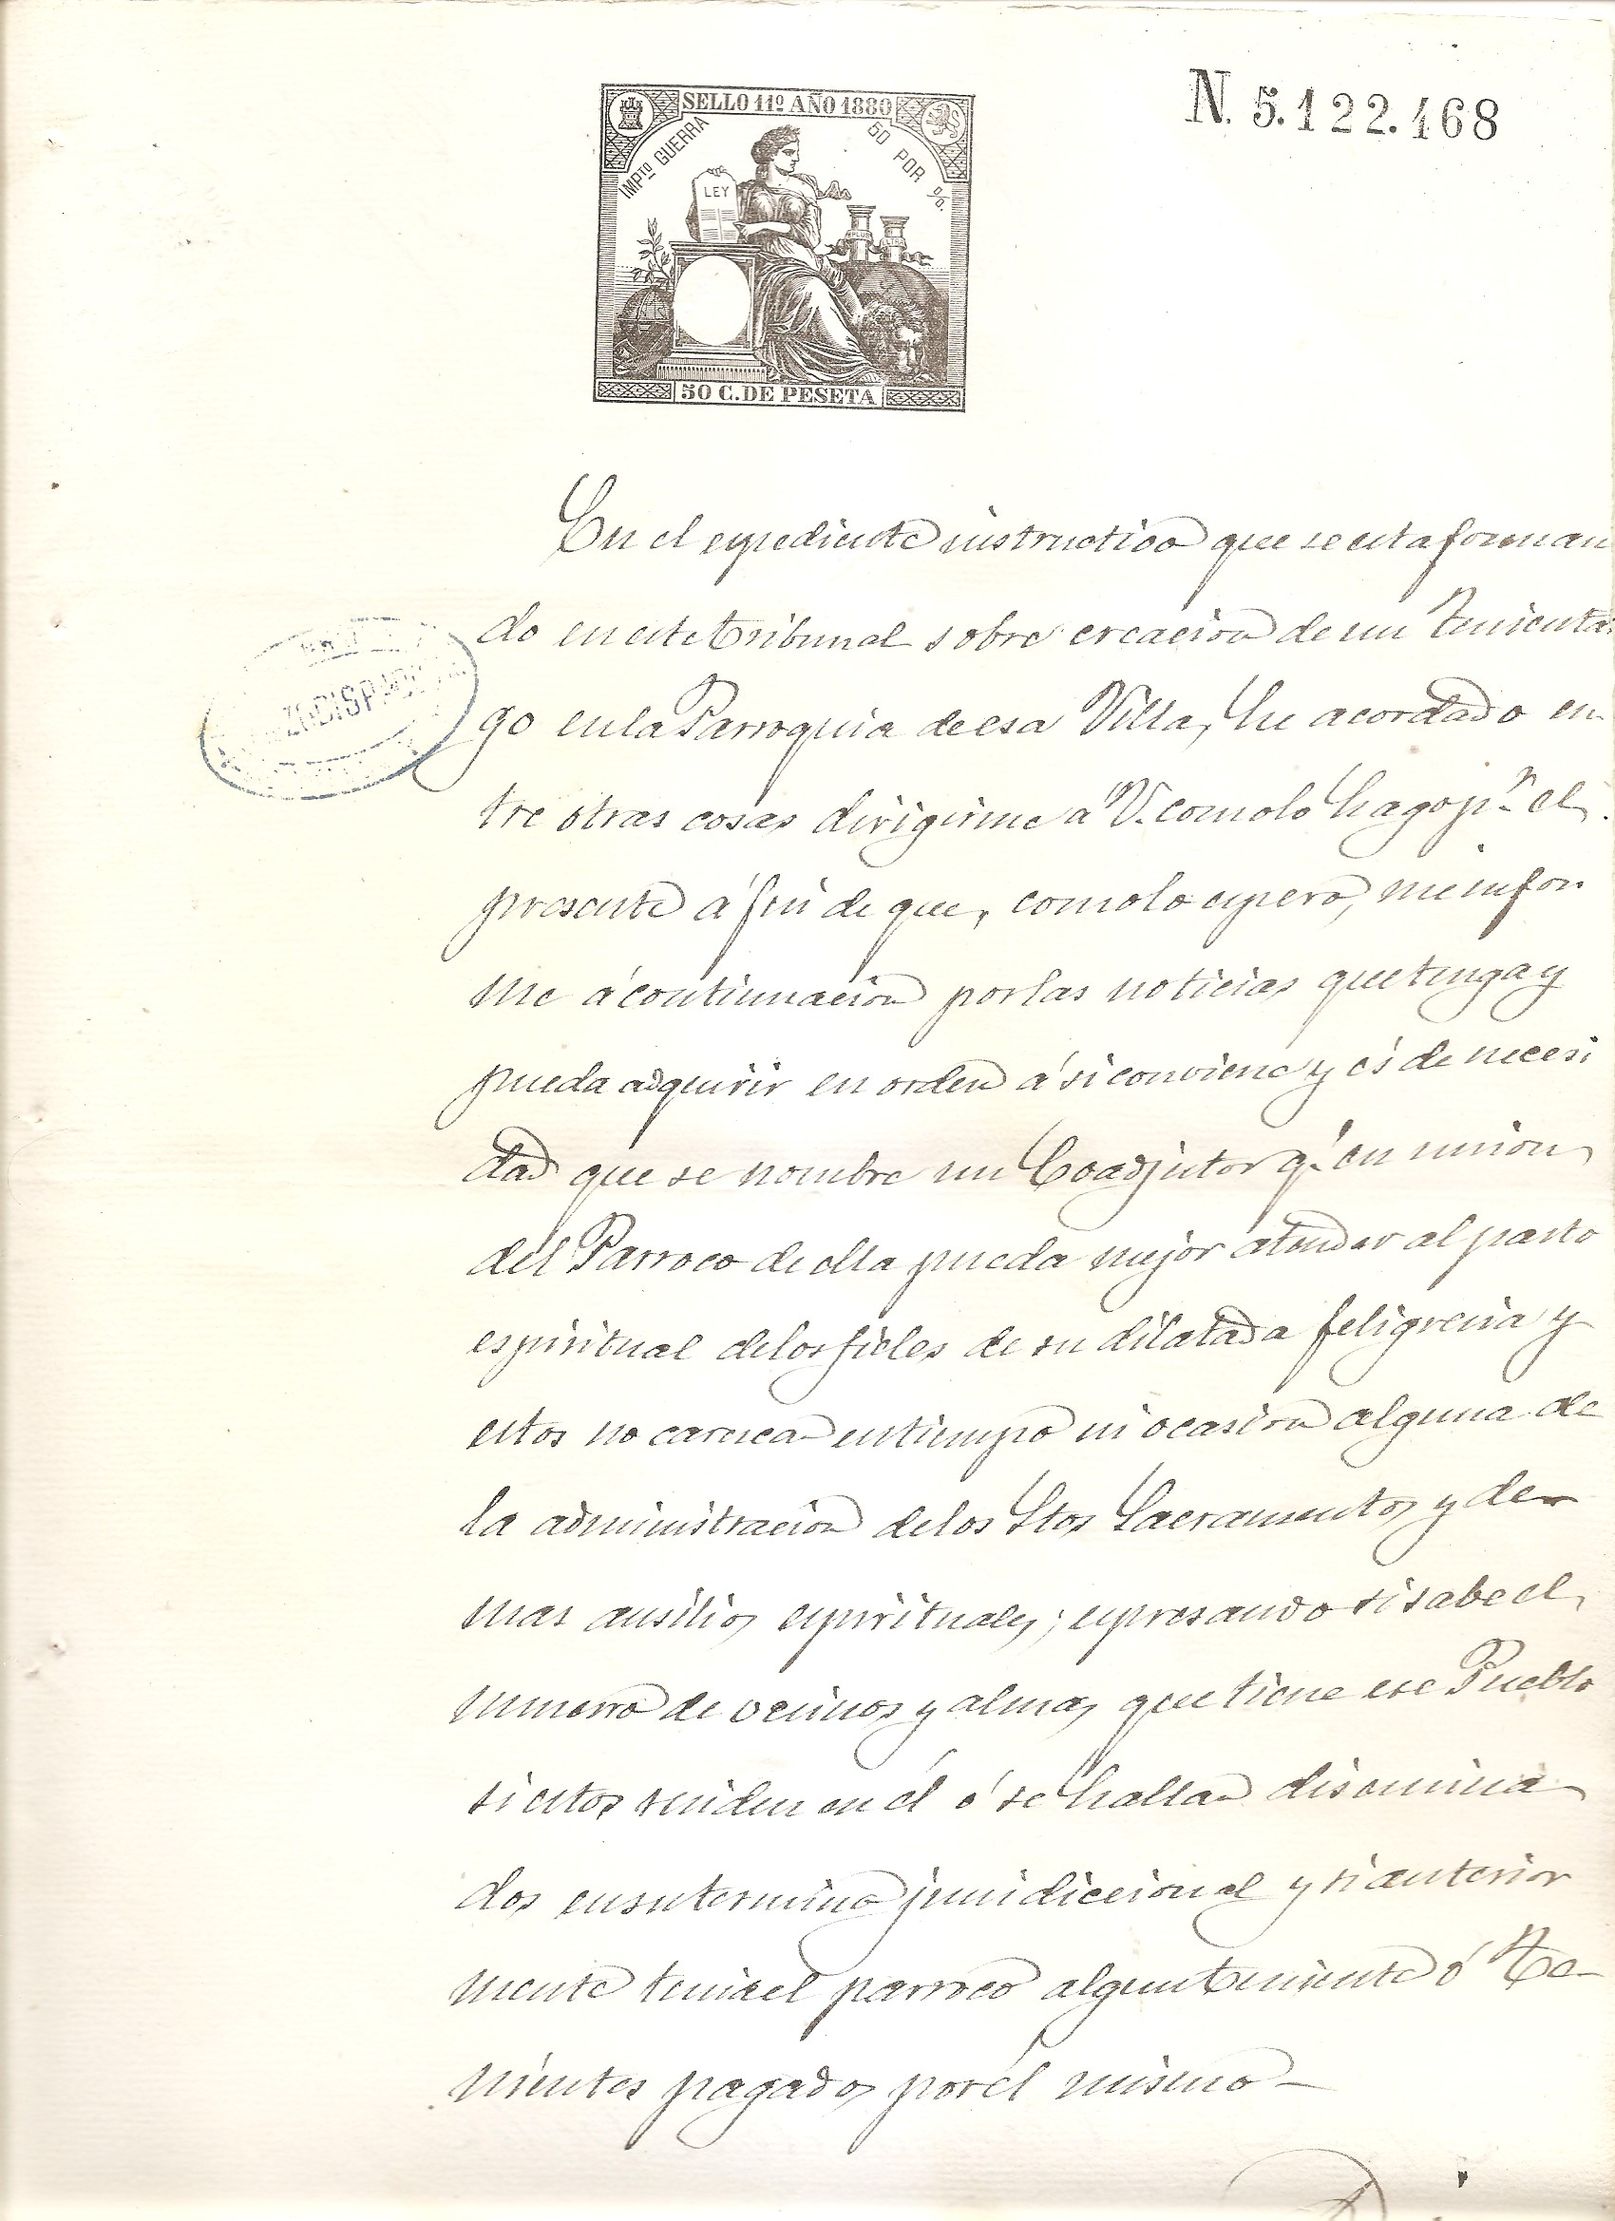 N. 5.122.168
SELLO 11º AÑO 1880
IMPTO GUERRA
50 POR %.
LEY
PLUS
50 C. DE PESETA
En el espediente instructivo que se esta forman
do en este Tribunal sobre creacion de un Tenientaz
go en la Parroquia de esa Villa, he acordado en
tre otras cosas dirigirme a V. como lo hago pr. el
presente á fin de que, como lo espero, me infor
me á continuacion por las noticias que tenga y
pueda adquirir en orden á si conviene y és de necesi
dad que se nombre un Coadjutor q. en union
del Parroco de ella pueda mejor atender al pasto
espiritual de los fieles de su dilatada feligresia y
estos no carezcan en tiempo ni ocasion alguna de
la administracion de los Stos Sacramentos y de
mas ausilios espirituales; espresando si sabe el
numero de vecinos y almas que tiene ese Pueblo
si estos residen en él ó se hallan disemina
dos en su termino juridiccional y si anterior
mente tenia el parroco algun teniente ó Te-
nientes pagados por él mismo